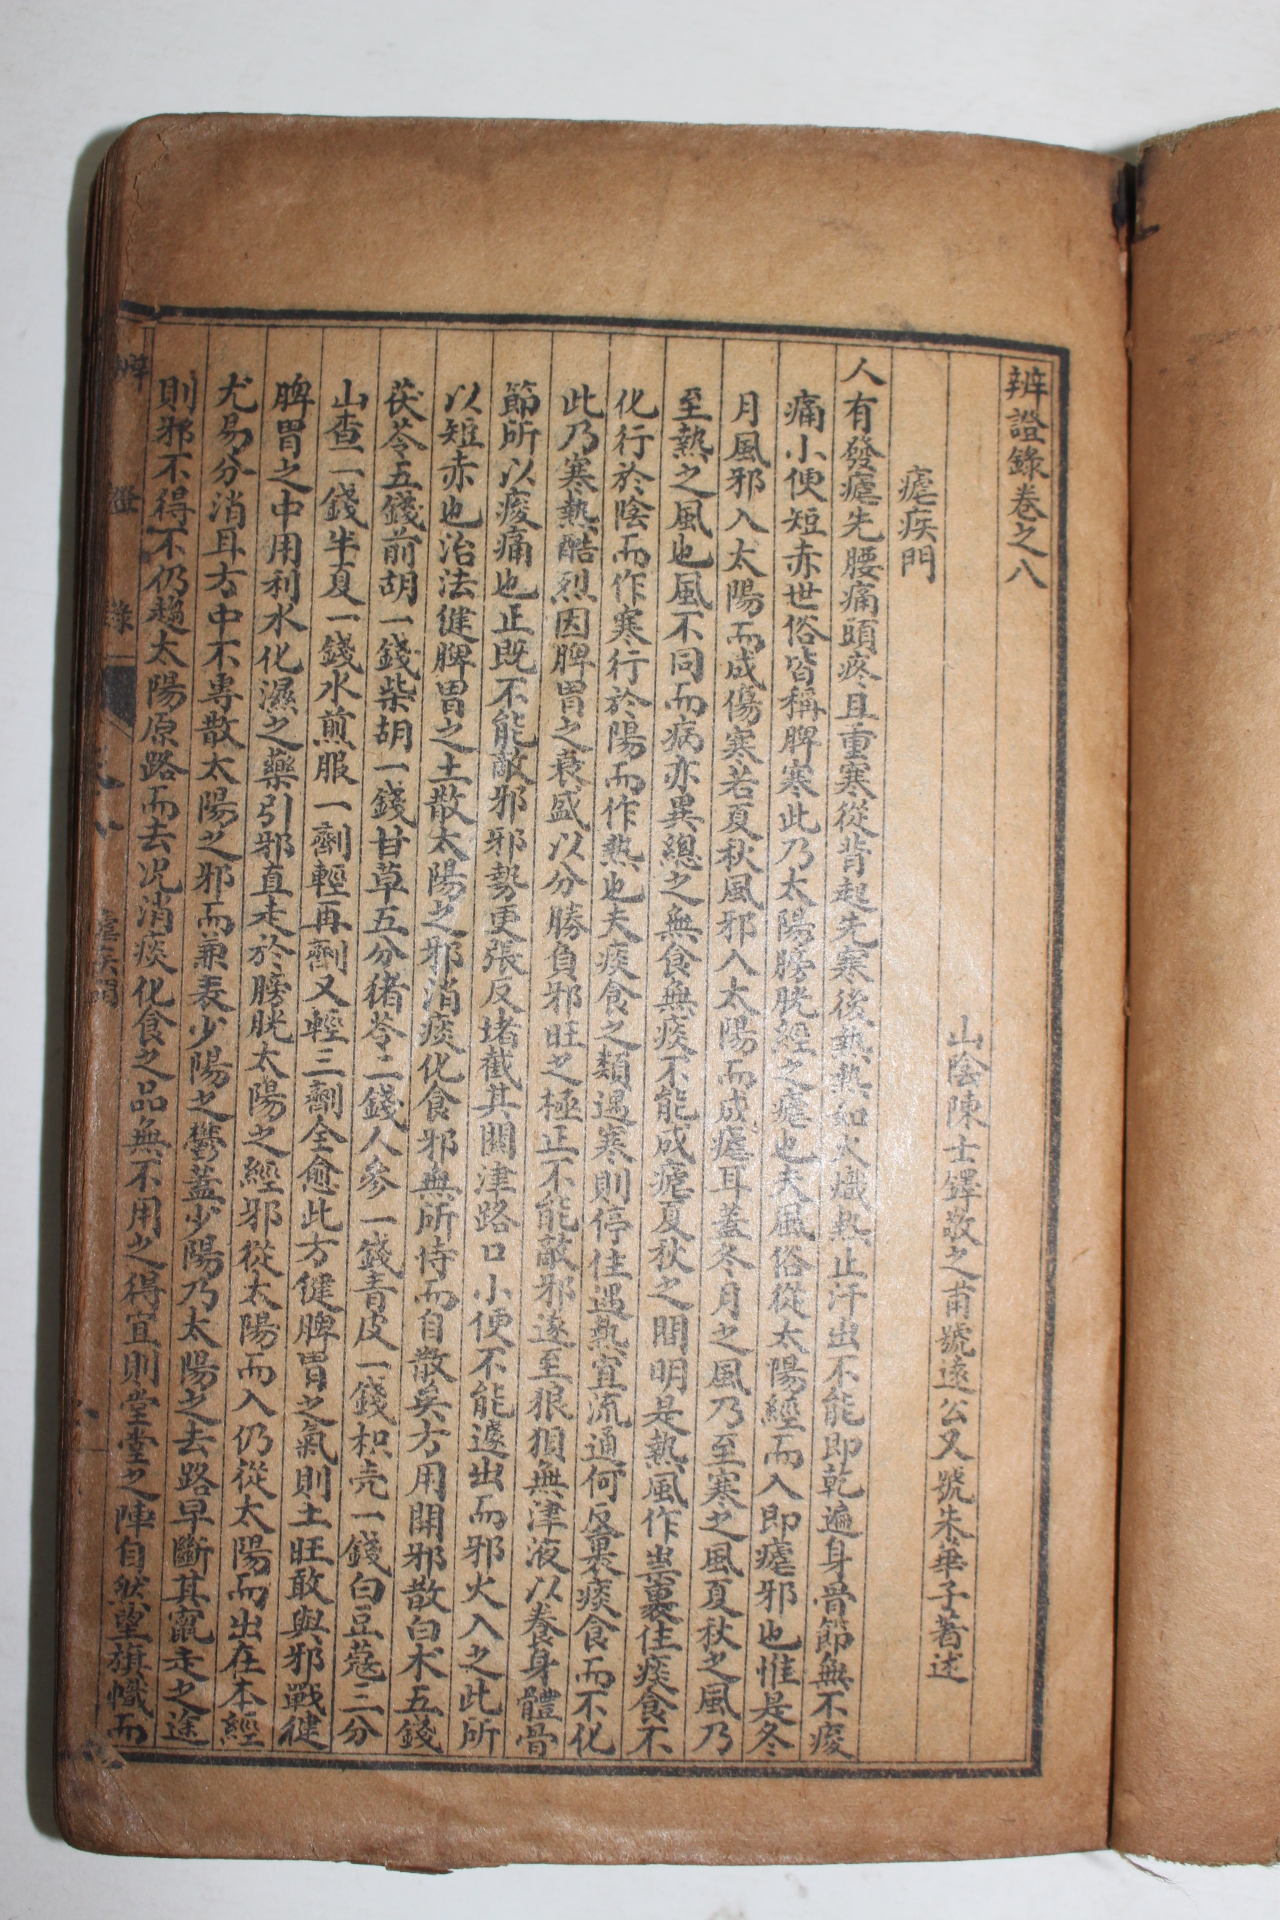 辨證錄卷之八
山陰陳士鐸敬之甫號遠公又號朱華子著述
瘧疾門
人有發瘧先腰痛頭疼且重寒從背起先寒後熱熱如火熾熱止汗出不能卽乾遍身骨節無不痠
痛小便短赤世俗皆稱脾寒此乃太陽膀胱經之瘧也夫風俗從太陽經而入卽瘧邪也惟是冬
月風邪入太陽而成傷寒若夏秋風邪入太陽而成瘧耳蓋冬月之風乃至寒之風夏秋之風乃
至熱之風也風不同而病亦異總之無食無痰不能成瘧夏秋之間明是熱風作祟裹住痰食不
化行於陰而作寒行於陽而作熱也夫痰食之類遇寒則停住遇熱宜流通何反裹痰食而不化
此乃寒熱酷烈因脾胃之衰盛以分勝負邪旺之極正不能敵邪遂至狼狽無津液以養身體骨
節所以痠痛也正旣不能敵邪邪勢更張反堵截其關津路口小便不能遽出而邪火入之此所
以短赤也治法健脾胃之土散太陽之邪消痰化食邪無所恃而自散矣方用開邪散白朮五錢
茯苓五錢前胡一錢柴胡一錢甘草五分猪苓二錢人參一錢青皮一錢枳壳一錢白豆蔻三分
山查一錢半夏一錢水煎服一劑輕再劑又輕三劑全愈此方健脾胃之氣則土旺敢與邪戰健
脾胃之中用利水化濕之藥引邪直走於膀胱太陽之經邪從太陽而入仍從太陽而出在本經
尤易分消耳方中不專散太陽之邪而兼表少陽之鬱蓋少陽乃太陽之去路早斷其竄走之途
則邪不得不仍趨太陽原路而去况消痰化食之品無不用之得宜則堂堂之陣自然望旗幟而
辨證錄 瘧疾門